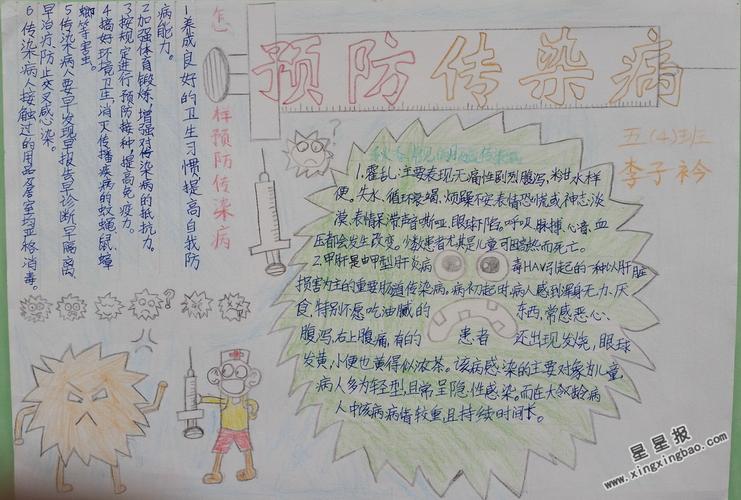 预防传染病
五(4)班
李子衿
怎样预防传染病
1养成良好的卫生习惯提高自我防
病能力。
2加强体育锻炼,增强对传染病的抵抗力。
3按规定进行预防接种提高免疫力。
4搞好环境卫生,消灭传播疾病的蚊蝇鼠蟑
螂等害虫。
5传染病人要早发现早报告早诊断早隔离
早治疗,防止交叉感染。
6传染病人接触过的用品及居室均严格消毒。
?
1.霍乱:主要表现无痛性剧烈腹泻,粉甘水样
便、失水、循环衰竭、烦躁不安表情恐慌或神志淡
漠,表情呆滞声音嘶哑,眼球下陷。呼吸、脉搏、心音、血
压都会发生改变。少数患者尤其是儿童可因高热而死亡。
2.甲肝:是由甲型肝炎病毒HAV引起的一种以肝脏
损害为主的重要肠道传染病,病初起时,病人感到浑身无力、厌
食,特别不愿吃油腻的东西,常感恶心、
腹泻,右上腹痛,有的患者还出现发烧,眼球
发黄,小便也黄得似浓茶。该病感染的主要对象为儿童,
病人多为轻型,且常呈隐性感染。而在大令龄病
人中该病病情较重,且持续时间长。
?
星星报
www.xingxingbao.com